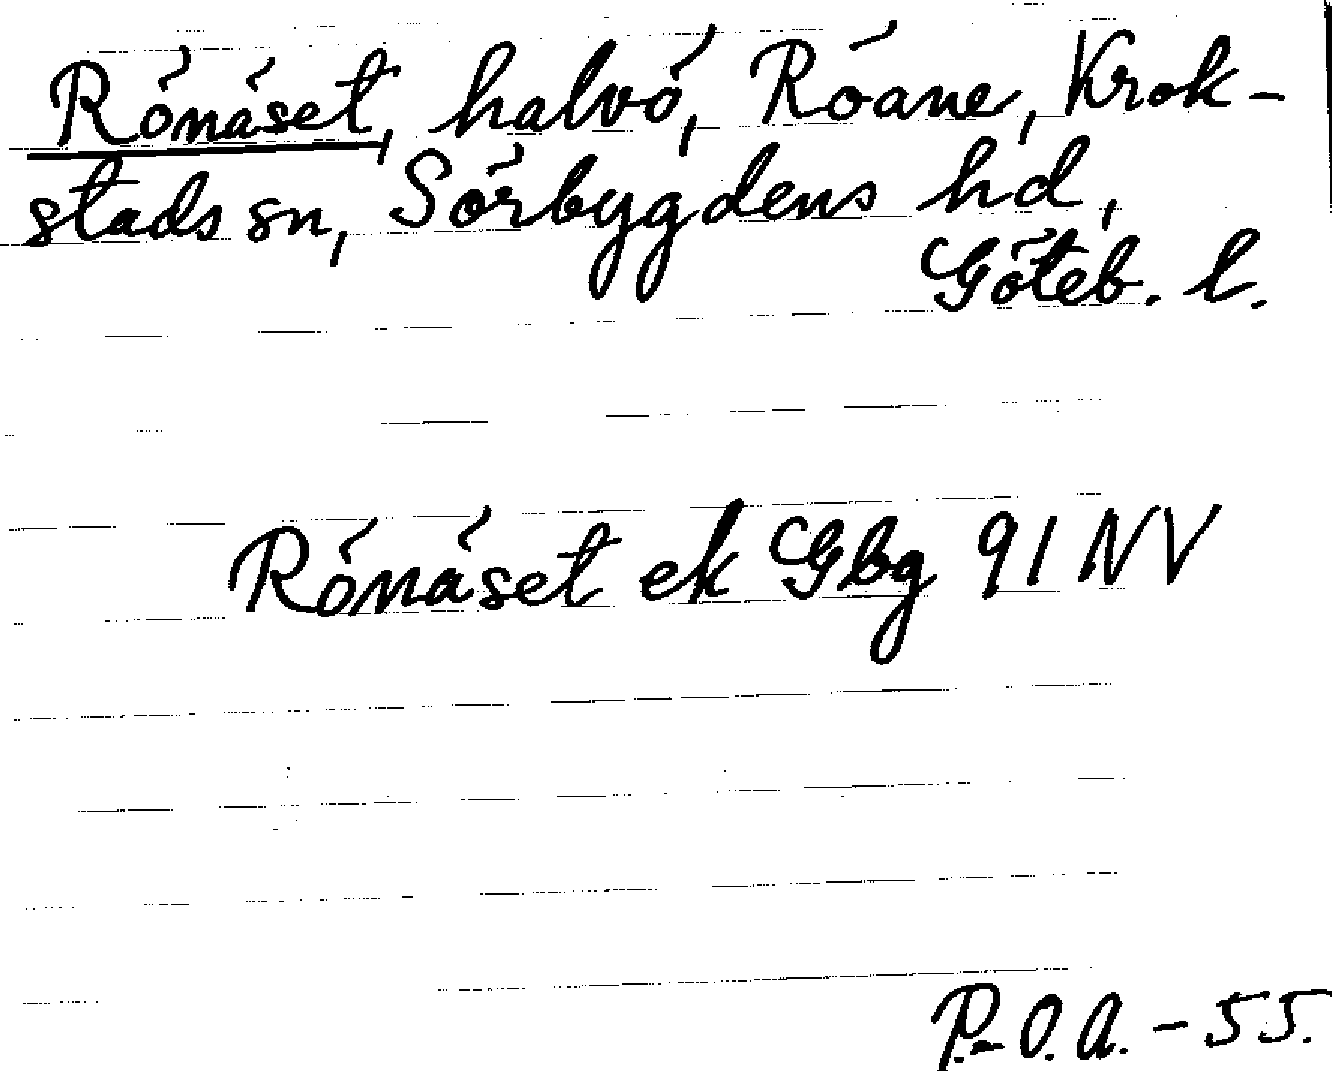 Rönäset, halvö, Röane, Krok-
stads sn, Sörbygdens hd,
Göteb. l.
Rönäset ek Gbg 91 NV
P.-O. A. - 55.